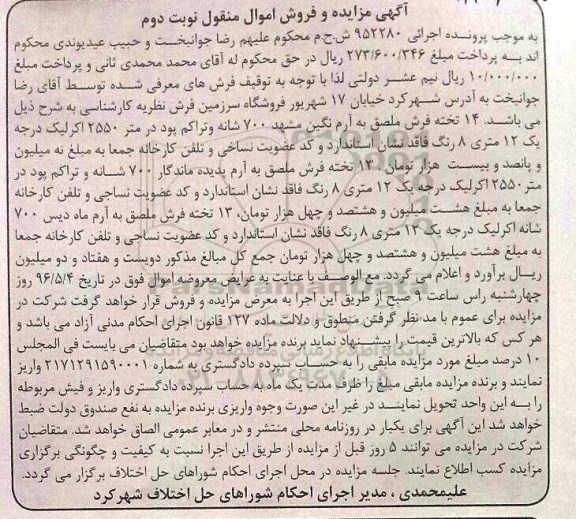 آگهی مزایده و فروش اموال منقول نوبت دوم
به موجب پرونده اجرائی ۹۵۲۲۸۰ ش.ح.م محکوم علیهم رضا جوانبخت و حبیب عیدیوندی محکوم
اند به پرداخت مبلغ ۲۷۳/۶۰۰/۳۴۶ ریال در حق محکوم له آقای محمد محمدی ثانی و پرداخت مبلغ
۱۰/۰۰۰/۰۰۰ ریال نیم عشر دولتی لذا با توجه به توقیف فرش های معرفی شده توسط آقای رضا
جوانبخت به آدرس شهرکرد خیابان ۱۷ شهریور فروشگاه سرزمین فرش نظریه کارشناسی به شرح ذیل
می باشد. ۱۴ تخته فرش ملصق به آرم نگین مشهد ۷۰۰ شانه وتراکم پود در متر ۲۵۵۰ اکرلیک درجه
یک ۱۲ متری ۸ رنگ فاقد نشان استاندارد و کد عضویت نساخی و تلفن کارخانه جمعا به مبلغ نه میلیون
و پانصد و بیست هزار تومان ۱۳ تخته فرش ملصق به آرم پدیده ماندگار ۷۰۰ شانه و تراکم پود در
متر ۲۵۵۰ اکرلیک درجه یک ۱۲ متری ۸ رنگ فاقد نشان استاندارد و کد عضویت نساجی و تلفن کارخانه
جمعا به مبلغ هشت میلیون و هشتصد و چهل هزار تومان، ۱۳ تخته فرش ملصق به آرم ماه دیس ۷۰۰
شانه اکرلیک درجه یک ۱۲ متری ۸ رنگ فاقد نشان استاندارد و کد عضویت نساجی و تلفن کارخانه جمعا
به مبلغ هشت میلیون و هشتصد و چهل هزار تومان جمع کل مبالغ مذکور دویست و هفتاد و دو میلیون
ریال برآورد و اعلام می گردد. مع الوصف با عنایت به عرایض معروضه اموال فوق در تاریخ ۹۶/۵/۴ روز
چهارشنبه راس ساعت ۹ صبح از طریق این اجرا به معرض مزایده و فروش قرار خواهد گرفت شرکت در
مزایده برای عموم با مد نظر گرفتن منطوق و دلالت ماده ۱۳۷ قانون اجرای احکام مدنی آزاد می باشد و
هر کس که بالاترین قیمت را پیشنهاد نماید برنده مزایده خواهد بود متقاضیان می بایست فی المجلس
۱۰ درصد مبلغ مورد مزایده مابقی را به حساب سپرده دادگستری به شماره ۲۱۷۱۲۹۱۵۹۰۰۰۱ واریز
نمایند و برنده مزایده مابقی مبلغ را ظرف مدت یک ماه به حساب سپرده دادگستری واریز و فیش مربوطه
را به این واحد تحویل نمایند در غیر این صورت وجوه واریزی برنده مزایده به نفع صندوق دولت ضبط
خواهد شد این آگهی برای یکبار در روزنامه محلی منتشر و در معابر عمومی الصاق خواهد شد. متقاضیان
شرکت در مزایده می توانند ۵ روز قبل از مزایده از طریق این اجرا نسبت به کیفیت و چگونگی برگزاری
مزایده کسب اطلاع نمایند. جلسه مزایده در محل اجرای احکام شوراهای حل اختلاف برگزار می گردد.
علیمحمدی ، مدیر اجرای احکام شوراهای حل اختلاف شهرکرد